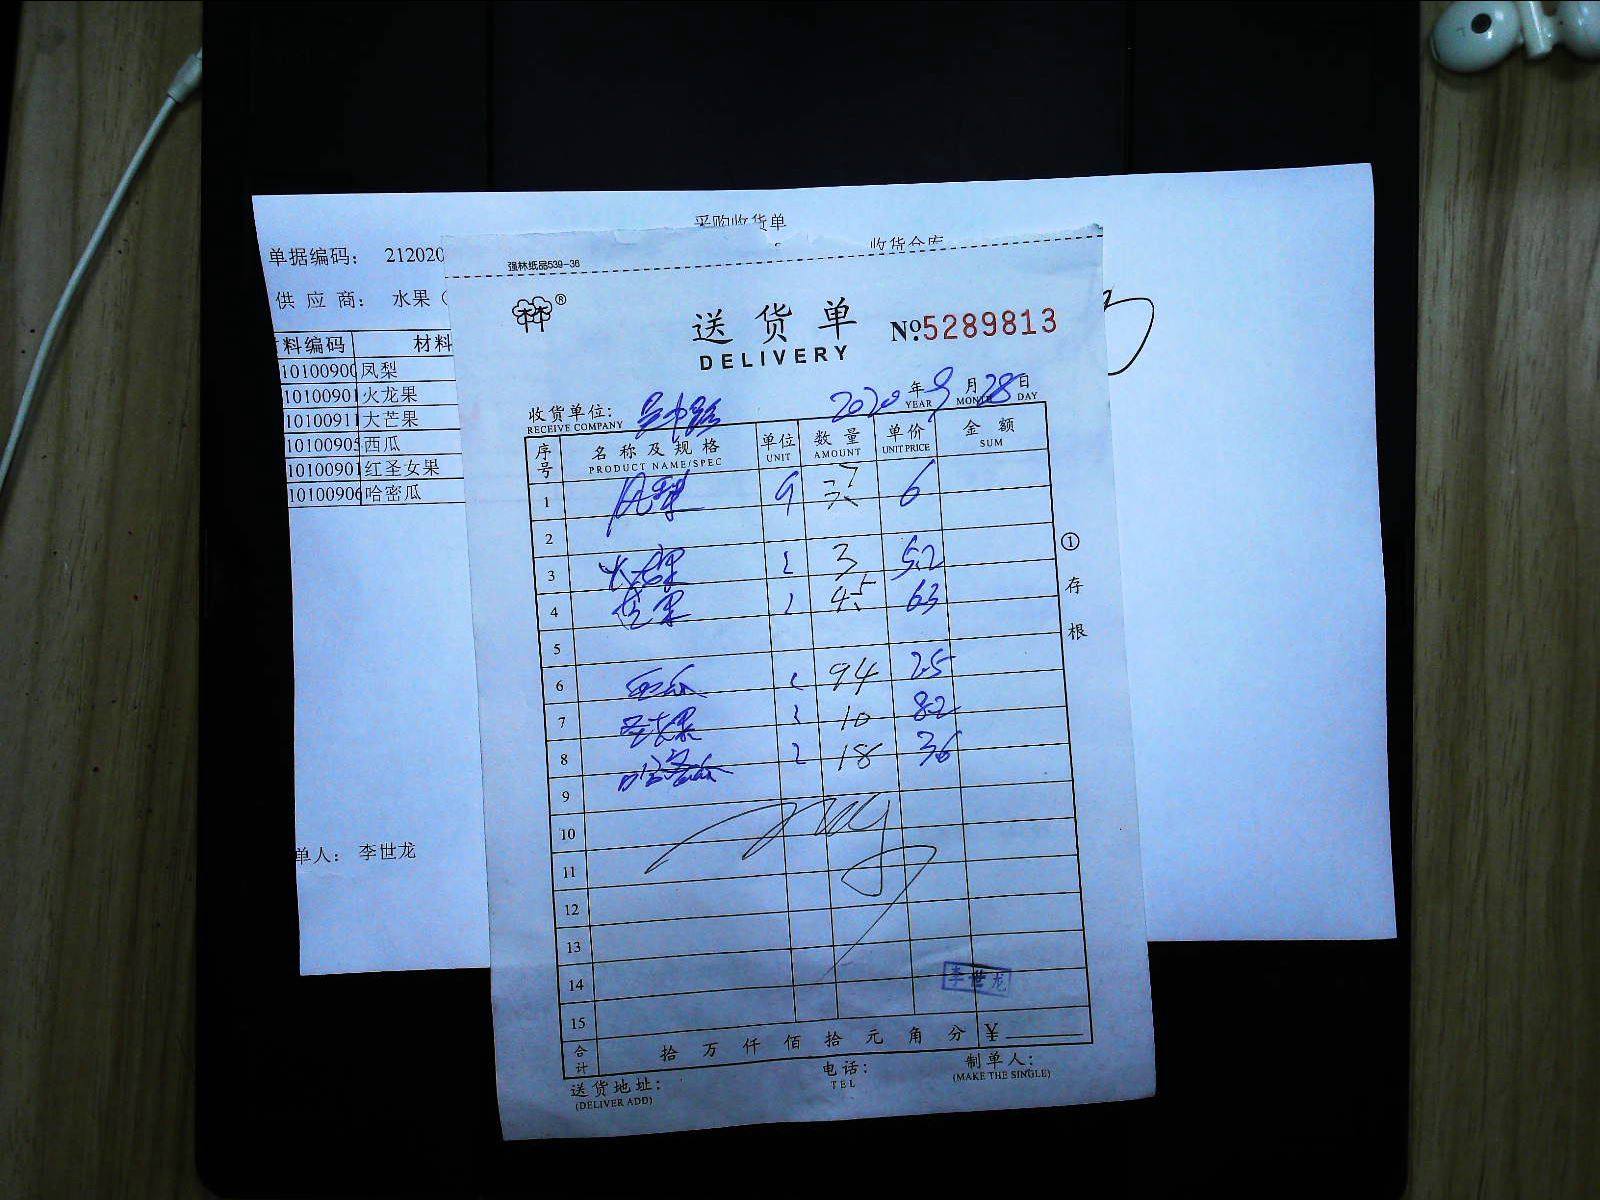 采购收货单
单据编码： 212020
收货仓库
供 应 商： 水果（
料编码 材料
10100900 凤梨
10100901 火龙果
10100911 大芒果
10100905 西瓜
10100901 红圣女果
10100906 哈密瓜
单人： 李世龙
强林纸品539-36
林®
送货单 №5289813
DELIVERY
收货单位： 吴中路 2020年9月28日
RECEIVE COMPANY YEAR MONTH DAY
序号 名称及规格 单位 数量 单价 金额
PRODUCT NAME/SPEC UNIT AMOUNT UNIT PRICE SUM
1 凤梨 6
2
3 火龙果 3 5.2
4 芒果 4.5 63
5
6 西瓜 94 2.5
7 圣女果 10 8.2
8 哈密瓜 18 36
9
10
11
12
13
14
15
李世龙
合计 拾 万 仟 佰 拾 元 角 分 ¥
① 存根
送货地址： 电话： 制单人：
(DELIVER ADD) TEL (MAKE THE SINGLE)